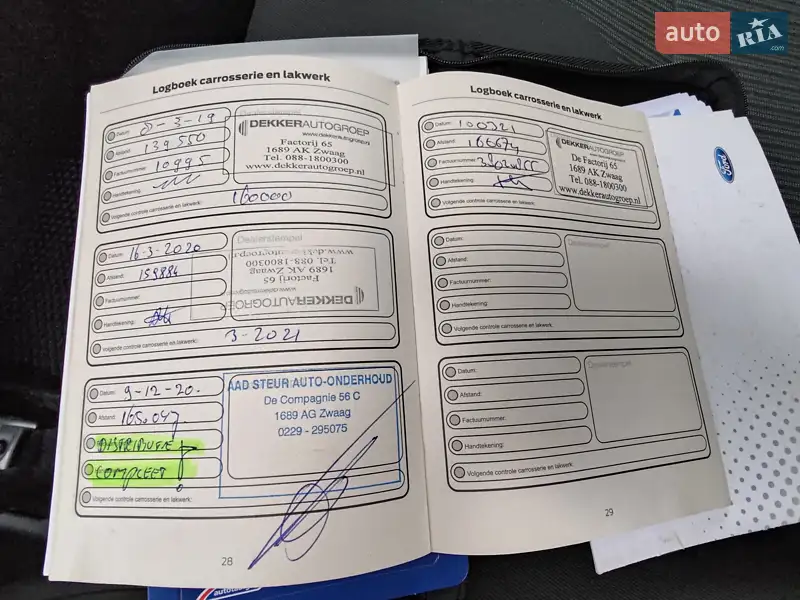 auto RIA
.com
Logboek carrosserie en lakwerk
Datum: 8-3-19
Afstand: 139550
Factuurnummer: 10995
Handtekening:
Volgende controle carrosserie en lakwerk: 160000
Dealerstempel
DEKKERAUTOGROEP
www.dekkerautogroep.nl
Factorij 65
1689 AK Zwaag
Tel. 088-1800300
www.dekkerautogroep.nl
Datum: 16-3-2020
Afstand: 159884
Factuurnummer:
Handtekening:
Volgende controle carrosserie en lakwerk: 3-2021
Dealerstempel
DEKKERAUTOGROEP
www.dekkerautogroep.nl
Factorij 65
1689 AK Zwaag
Tel. 088-1800300
Datum: 9-12-20.
Afstand: 165.047.
DISTRIBUTIE
COMPLEET !
Volgende controle carrosserie en lakwerk:
AAD STEUR AUTO-ONDERHOUD
De Compagnie 56 C
1689 AG Zwaag
0229 - 295075
28
Logboek carrosserie en lakwerk
Datum: 100321
Afstand: 166674
Factuurnummer:
Handtekening:
Volgende controle carrosserie en lakwerk:
DEKKERAUTOGROEP
De Factorij 65
1689 AK Zwaag
Tel. 088-1800300
www.dekkerautogroep.nl
Datum:
Afstand:
Factuurnummer:
Handtekening:
Volgende controle carrosserie en lakwerk:
Dealerstempel
Datum:
Afstand:
Factuurnummer:
Handtekening:
Volgende controle carrosserie en lakwerk:
Dealerstempel
29
Ford